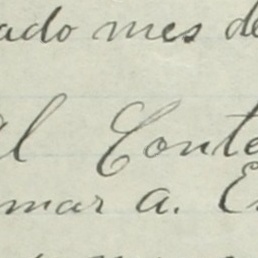 ado mes de
al Conte
mar a. E